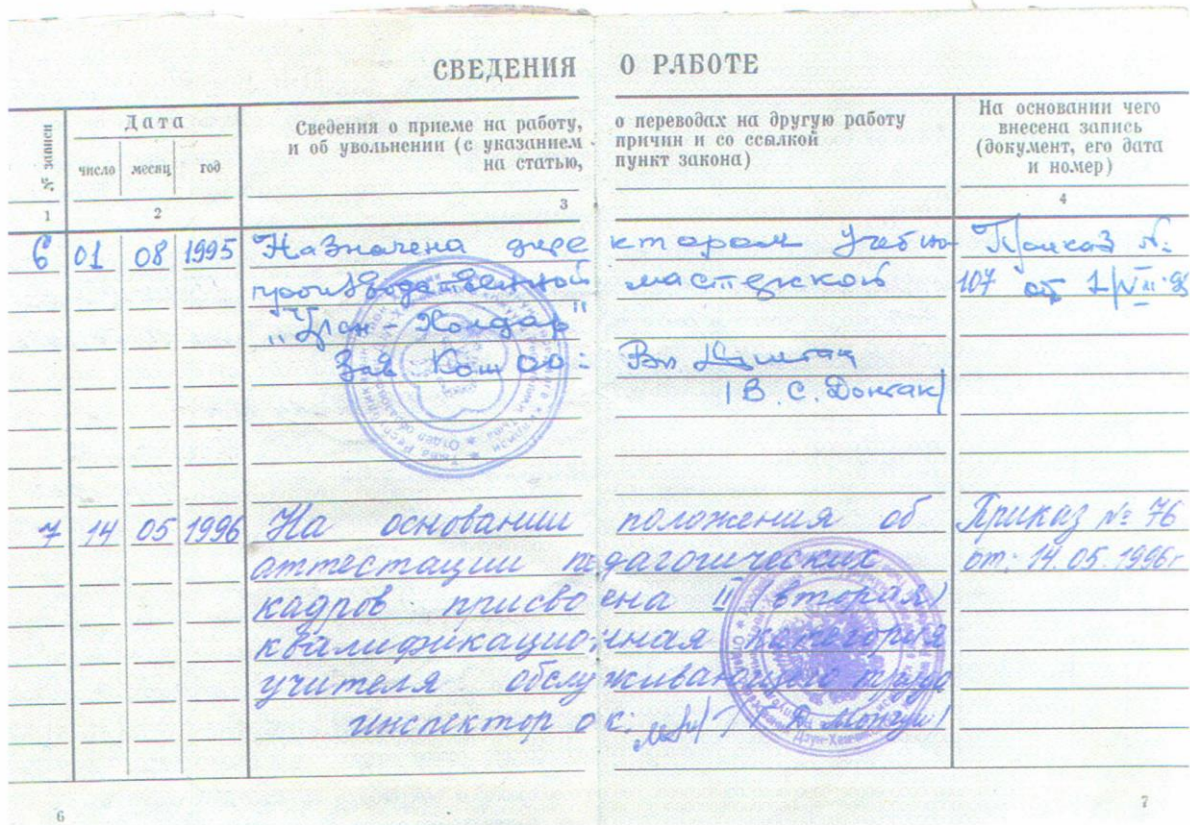 СВЕДЕНИЯ О РАБОТЕ
№ записи
Дата
число месяц год
Сведения о приеме на работу, о переводах на другую работу
и об увольнении (с указанием причин и со ссылкой
на статью, пункт закона)
На основании чего
внесена запись
(документ, его дата
и номер)
1 2 3 4
6 01 08 1995 Назначена директором Учебно- Приказ №
производственной мастерской 107 от 1/VIII-95
Зав
(В. С. Донгак)
7 14 05 1996 На основании положения об Приказ № 76
аттестации педагогических от: 14.05.1996г
кадров присвоена II (вторая)
квалификационная категория
учителя обслуживающего труда
инспектор ок:
6 7